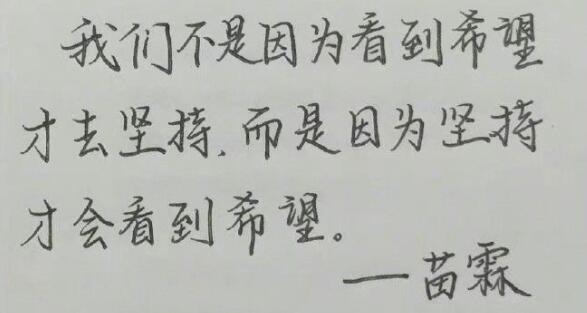 我们不是因为看到希望
才去坚持、而是因为坚持
才会看到希望。
——苗霖